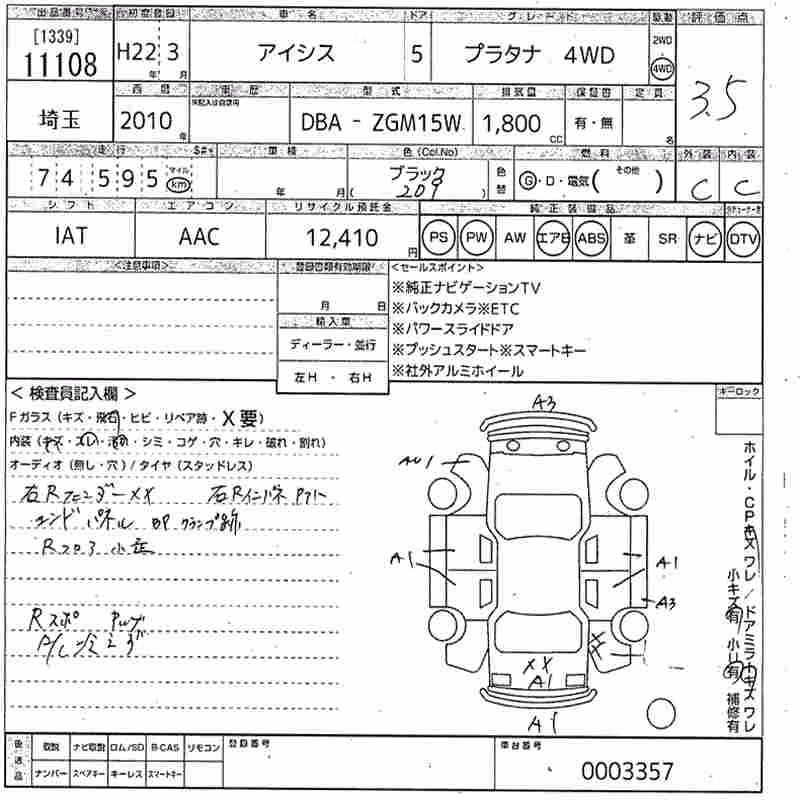 出品番号 初度登録 車名 ドア グレード 駆動 評価点
[1339]
11108 H22年 3月 アイシス 5 プラタナ 4WD 2WD 4WD 3.5
西暦 車歴 型式 排気量 保証書 定員
埼玉 2010年 DBA - ZGM15W 1,800cc 有・無 名
走行 車検 色(Col.No) 燃料 外装 内装
74595 マイル km 年 月 ブラック 209 色替 G・D・電気( その他 ) C C
シフト エアコン リサイクル預託金 純正装備品
IAT AAC 12,410円 PS PW AW エアB ABS 革 SR ナビ DTV
<注意事項> 登録書類有効期限 <セールスポイント>
月 日
※純正ナビゲーションTV
※バックカメラ※ETC
輸入車
※パワースライドドア
ディーラー・並行
※プッシュスタート※スマートキー
左H ・ 右H
※社外アルミホイール
< 検査員記入欄 > キーロック
Fガラス (キズ・飛石・ヒビ・リペア跡・X要)
内装 (キズ・スレ・汚れ・シミ・コゲ・穴・キレ・破れ・割れ)
オーディオ (無し・穴) / タイヤ (スタッドレス)
右Rフェンダーxx 右Rインパネ
エンドパネル BP クランプ跡
Rフロア 小歪
Rスポ
A3
AU1
A1
A1
A3
XX
A1
A1
ホイル・CPキズ ワレ / ドアミラーキズ ワレ
小キズ有 小U有 補修有
後送品 取説 ナビ取説 ロム/SD B-CAS リモコン 登録番号 車台番号
ナンバー スペアキー キーレス スマートキー 0003357